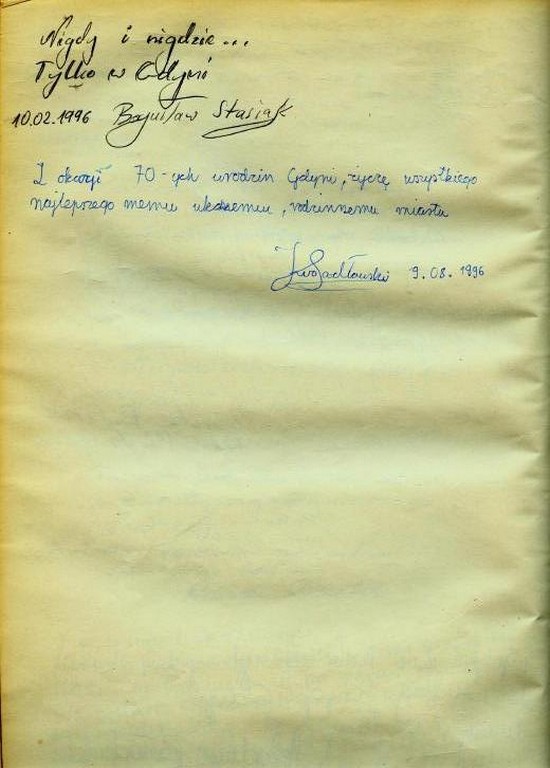 Nigdy i nigdzie...
Tylko w Gdyni
10.02.1996 Bogusław Stasiak
Z okazji 70-ych urodzin Gdyni, życzę wszystkiego
najlepszego memu ukochanemu, rodzinnemu miastu
9.08.1996